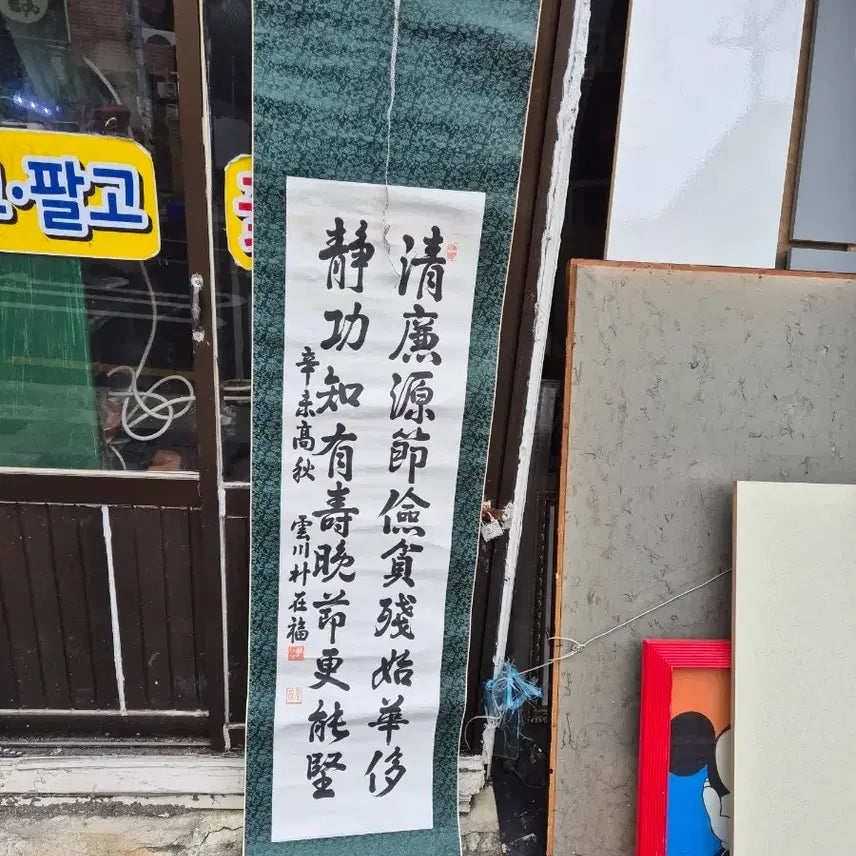 清廉源節儉貪殘始華侈
靜功知有壽晩節更能堅
辛未高秋 雲川朴在福
·팔고